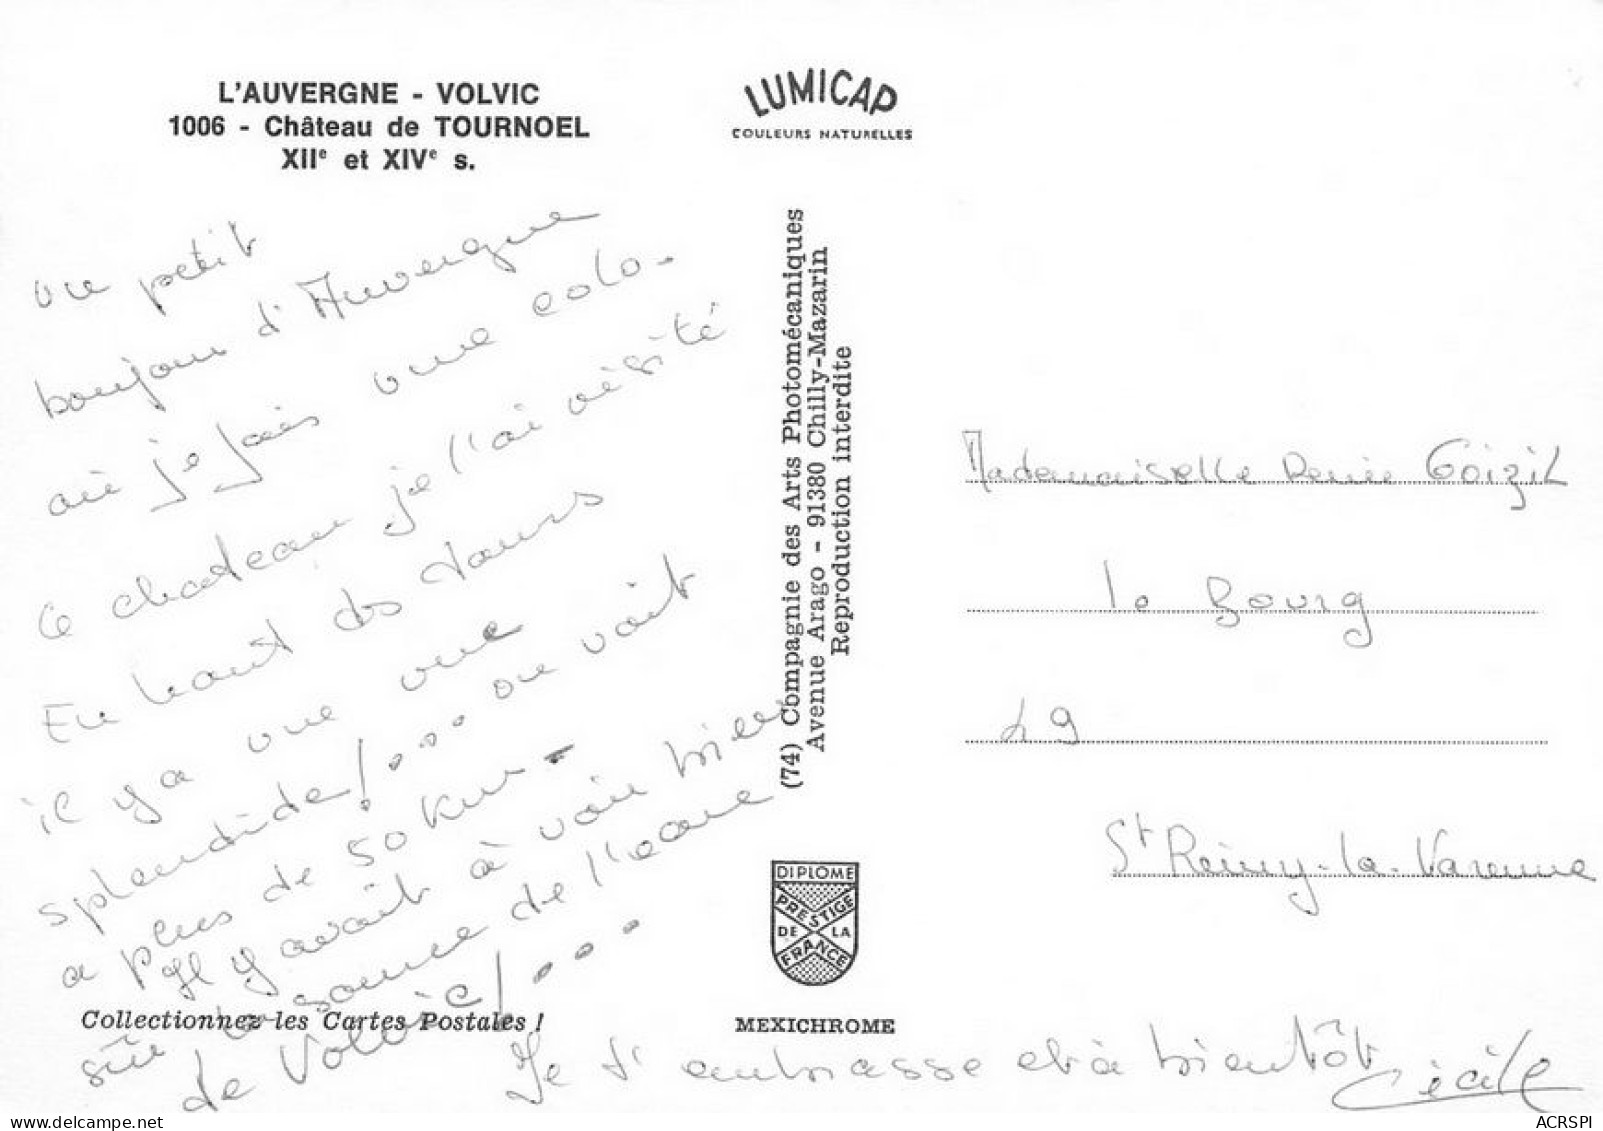 L'AUVERGNE - VOLVIC
1006 - Château de TOURNOEL
XIIe et XIVe s.
LUMICAP
COULEURS NATURELLES
un petit
bonjour d'Auvergne
où je fais une colo-
Ce chateau je l'ai visité
En haut des tours
il y a une vue
splendide!... on voit
a plus de 50 Km -
Il y avait à voir bien
sûr la source de l'eau
de Volvic!...
Je t'embrasse et à bientôt
Cécile
Collectionnez les Cartes Postales !
(74) Compagnie des Arts Photomécaniques
Avenue Arago - 91380 Chilly-Mazarin
Reproduction interdite
DIPLOME
PRESTIGE
DE LA
FRANCE
MEXICHROME
Mademoiselle Renée Goizil
le Bourg
49
St Rémy-la-Varenne
ACRSPI